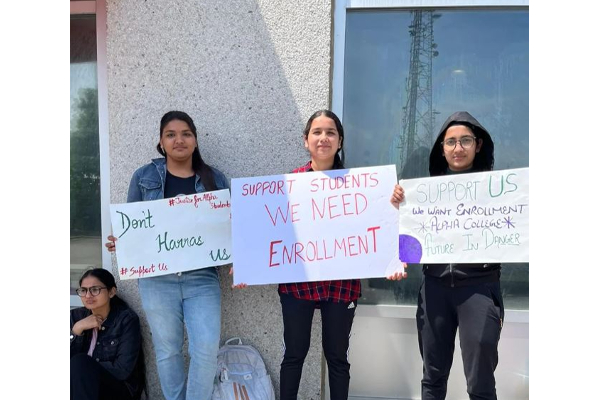 #Justice for Alpha
Students
Don't
Harras
Us
#Support Us
SUPPORT STUDENTS
WE NEED
ENROLLMENT
SUPPORT US
WE WANT ENROLLMENT
*ALPHA COLLEGE*
FUTURE IN DANGER